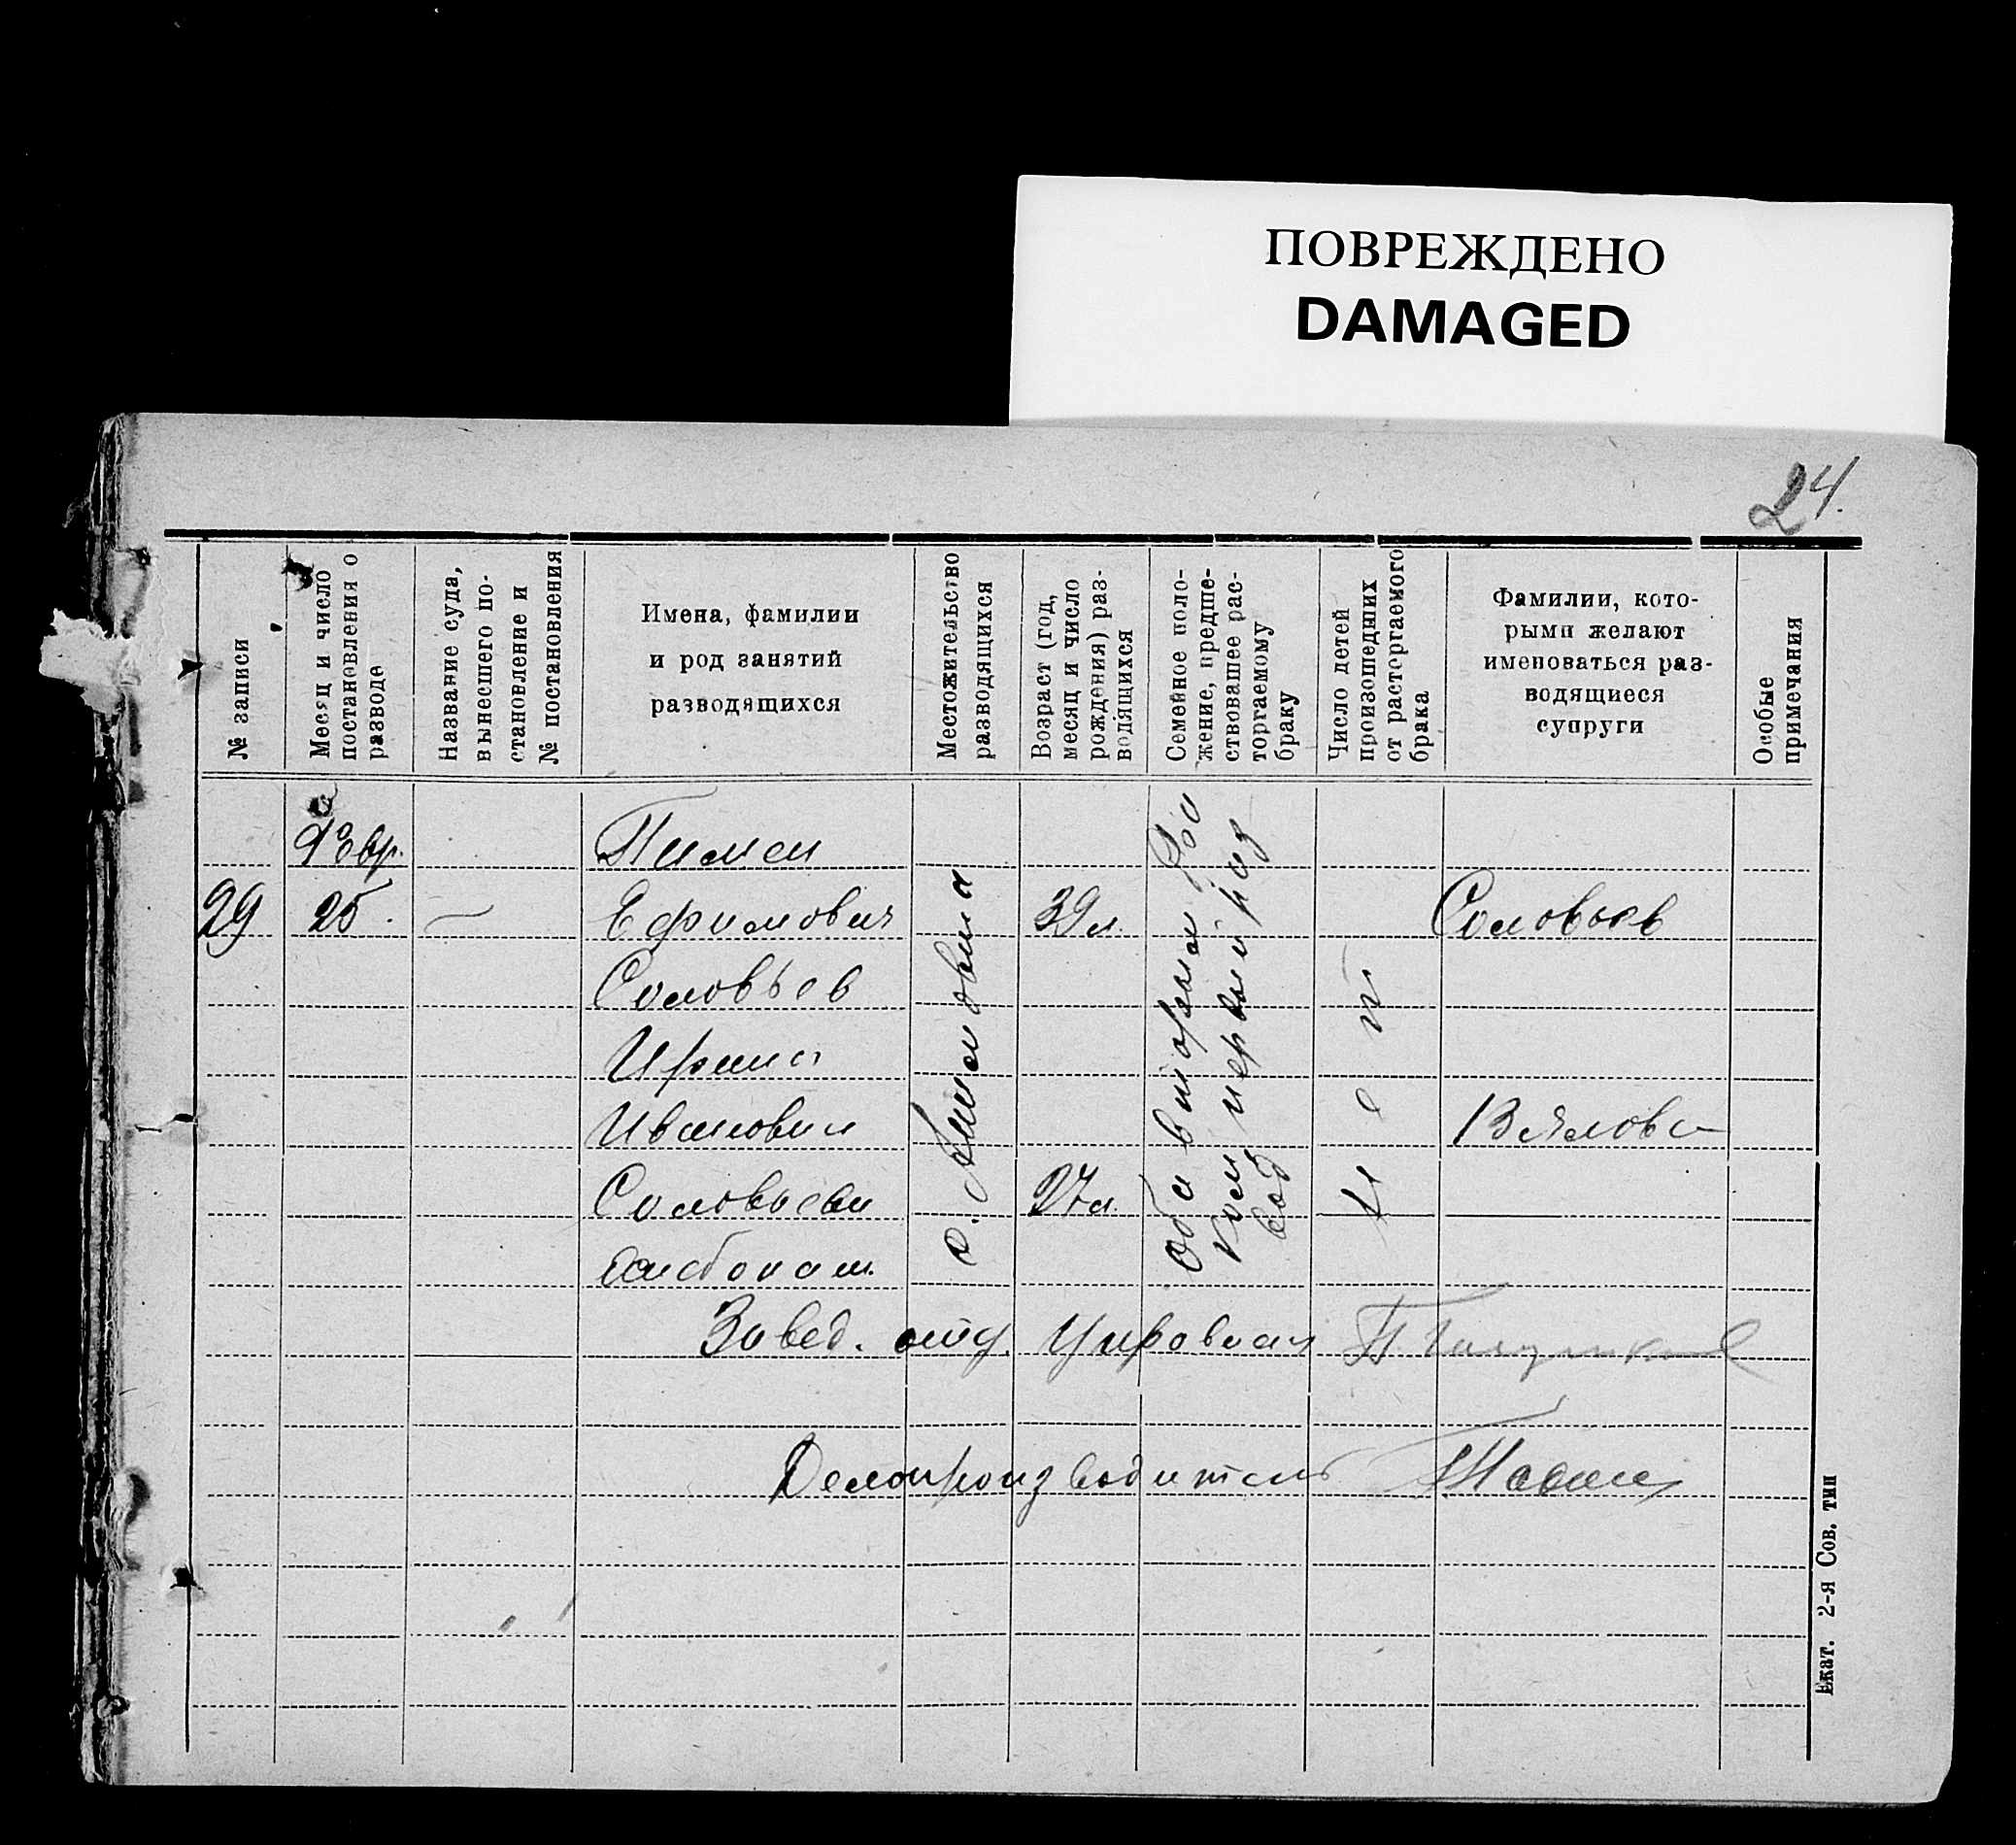 ПОВРЕЖДЕНО
DAMAGED
24.
№ записи
Месяц и число
постановления о
разводе
Название суда,
вынесшего по-
становление и
№ постановления
Имена, фамилии
и род занятий
разводящихся
Местожительство
разводящихся
Возраст (год,
месяц и число
рождения) раз-
водящихся
Семейное поло-
жение, предше-
ствовавшее рас-
торгаемому
браку
Число детей
происшедших
от расторгаемого
брака
Фамилии, кото-
рыми желают
именоваться раз-
водящиеся
супруги
Особые
примечания
29
Февр.
25.
—
Пимен
Ефимович
Соловьев
Ирина
Ивановна
Соловьева
с.
39 л.
27 л.
Оба в
первый
вод
Нет
Соловьев
Вялова
Завед. отд.
Делопроизводитель
Екат. 2-я Сов. тип